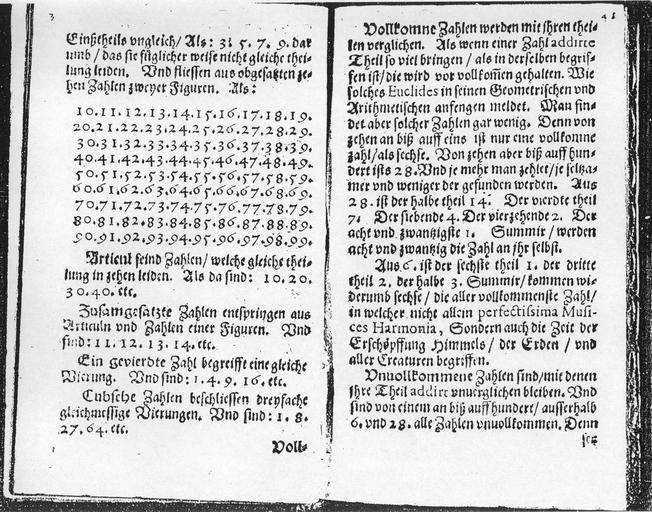 3
Einßtheils vngleich/ Als: 3. 5. 7. 9. dar
umb/ das sie füglicher weise nicht gleiche thei-
lung leiden. Vnd fliessen aus obgesatzten ze-
hen Zahlen zweyer Figuren. Als:
10.11.12.13.14.15.16.17.18.19.
20.21.22.23.24.25.26.27.28.29.
30.31.32.33.34.35.36.37.38.39.
40.41.42.43.44.45.46.47.48.49.
50.51.52.53.54.55.56.57.58.59.
60.61.62.63.64.65.66.67.68.69.
70.71.72.73.74.75.76.77.78.79.
80.81.82.83.84.85.86.87.88.89.
90.91.92.93.94.95.96.97.98.99.
Articul seind Zahlen/ welche gleiche thei-
lung in zehen leiden. Als da sind: 10.20.
30.40. etc.
Zusamgesatzte Zahlen entspringen aus
Articuln vnd Zahlen einer Figuren. Vnd
sind: 11. 12. 13. 14. etc.
Ein gevierdte Zahl begreifft eine gleiche
Vierung. Vnd sind: 1. 4. 9. 16. etc.
Cubsche Zahlen beschliessen dreyfache
gleichmessige Vierungen. Vnd sind: 1. 8.
27. 64. etc.
Voll-
41
Vollkomne Zahlen werden mit jhren thei-
len verglichen. Als wenn einer Zahl addirte
Theil so viel bringen/ als in derselben begrif-
fen ist/ die wird vor vollkom̃en gehalten. Wie
solches Euclides in seinen Geometrischen vnd
Arithmetischen anfengen meldet. Man fin-
det aber solcher Zahlen gar wenig. Denn von
zehen an biß auff eins ist nur eine vollkomne
zahl/ als sechse. Von zehen aber biß auff hun-
dert ists 28. Vnd je mehr man zehlet/ je seltza-
mer vnd weniger der gefunden werden. Aus
28. ist der halbe theil 14. Der vierdte theil
7. Der siebende 4. Der vierzehende 2. Der
acht vnd zwantzigste 1. Summir/ werden
acht vnd zwantzig die Zahl an jhr selbst.
Aus 6. ist der sechste theil 1. der dritte
theil 2. der halbe 3. Summir/ kommen wi-
derumb sechse/ die aller vollkommenste Zahl/
in welcher nicht allein perfectissima Musi-
ces Harmonia, Sondern auch die Zeit der
Erschöpffung Himmels/ der Erden/ vnd
aller Creaturen begriffen.
Vnuollkommene Zahlen sind/ mit denen
jhre Theil addirt vnuerglichen bleiben. Vnd
sind von einem an biß auff hundert/ ausserhalb
6. vnd 28. alle Zahlen vnuollkommen. Denn